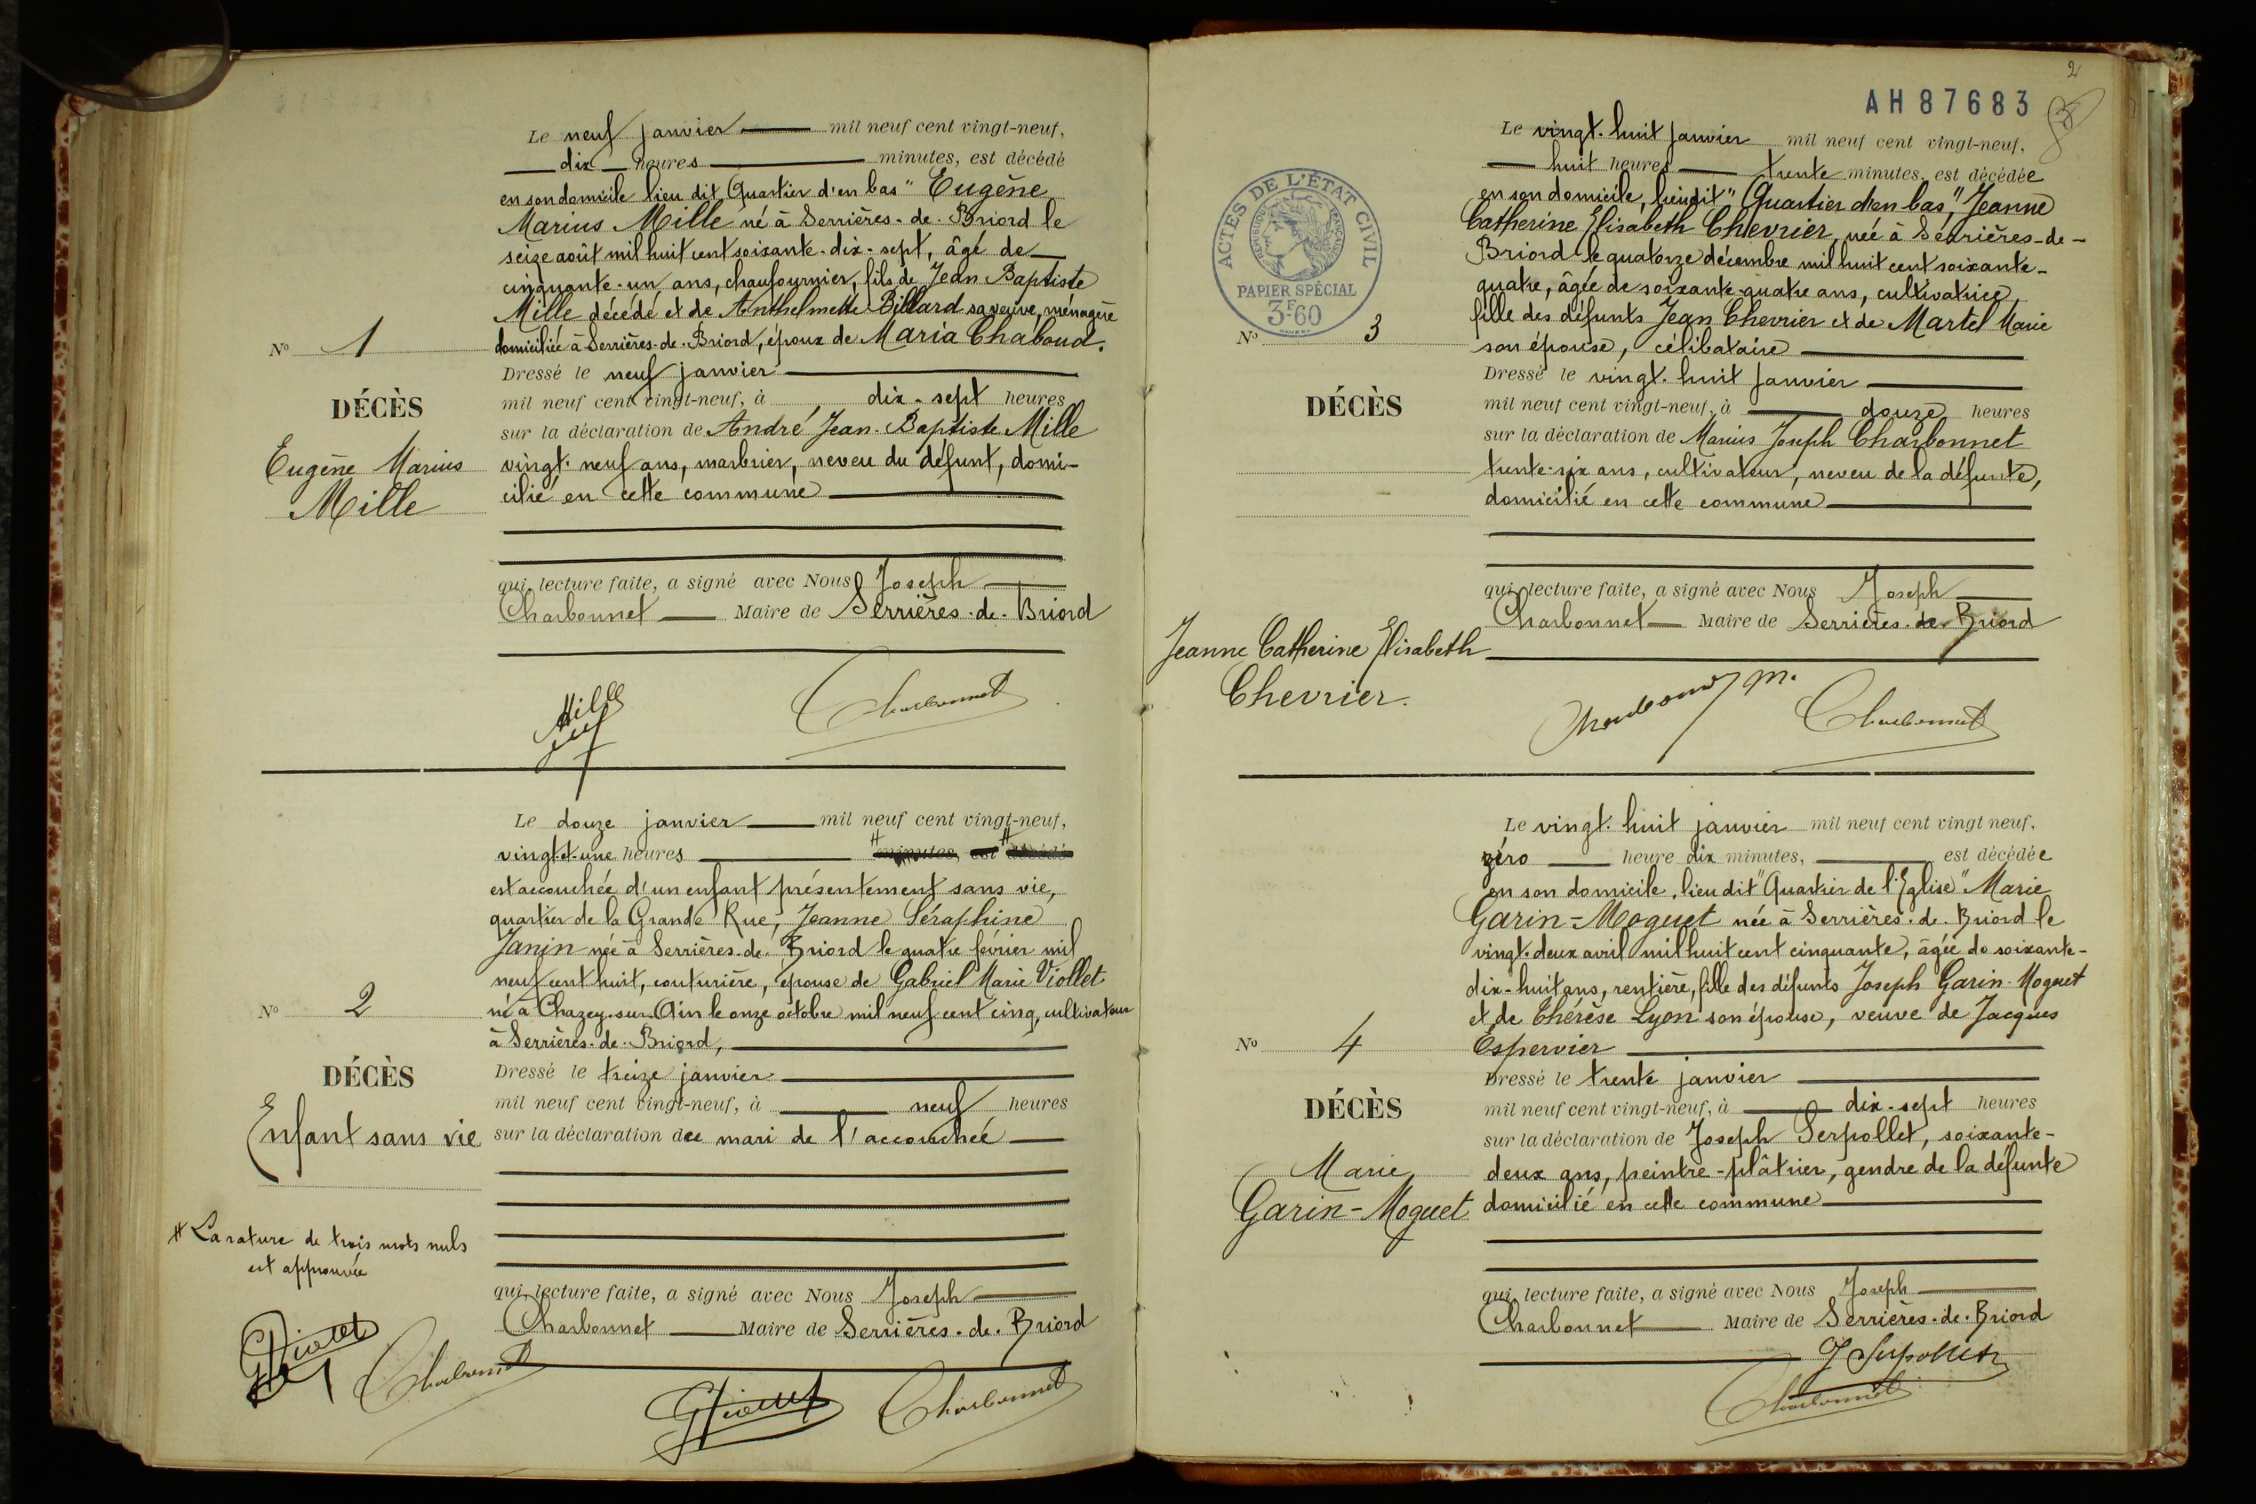 Le neuf janvier mil neuf cent vingt-neuf,
dix heures minutes, est décédé
en son domicile lieu dit "Quartier d'en bas" Eugène
Marius Mille né à Serrières-de-Briord le
seize août mil huit cent soixante-dix-sept, âgé de
cinquante-un ans, chaufournier, fils de Jean Baptiste
Mille décédé et de Anthelmette Billard sa veuve, ménagère
domiciliée à Serrières-de-Briord, époux de Maria Chaboud.
No 1
DÉCÈS
Eugène Marius
Mille
Dressé le neuf janvier
mil neuf cent vingt-neuf, à dix-sept heures
sur la déclaration de André Jean-Baptiste Mille
vingt-neuf ans, marbrier, neveu du défunt, domi-
cilié en cette commune
qui, lecture faite, a signé avec Nous Joseph
Charbonnet Maire de Serrières-de-Briord
Mille
Charbonnet
Le douze janvier mil neuf cent vingt-neuf,
vingt-et-une heures # minutes, est décédé #
est accouchée d'un enfant présentement sans vie,
quartier de la Grande Rue, Jeanne Séraphine
Janin née à Serrières-de-Briord le quatre février mil
neuf cent huit, couturière, épouse de Gabriel Marie Viollet
né à Chazey-sur-Ain le onze octobre mil neuf cent cinq, cultivateur
à Serrières-de-Briord,
No 2
DÉCÈS
Enfant sans vie
Dressé le treize janvier
mil neuf cent vingt-neuf, à neuf heures
sur la déclaration du mari de l'accouchée
# La rature de trois mots nuls
est approuvée
qui, lecture faite, a signé avec Nous Joseph
Charbonnet Maire de Serrières-de-Briord
G Viollet
Charbonnet
G Viollet
Charbonnet
2
AH 87683
ACTES DE L'ÉTAT CIVIL
RÉPUBLIQUE FRANÇAISE
PAPIER SPÉCIAL
3F60
Le vingt-huit janvier mil neuf cent vingt-neuf,
huit heures trente minutes, est décédée
en son domicile, lieu dit "Quartier d'en bas," Jeanne
Catherine Elisabeth Chevrier, née à Serrières-de-
Briord le quatorze décembre mil huit cent soixante-
quatre, âgée de soixante-quatre ans, cultivatrice,
fille des défunts Jean Chevrier et de Martel Marie
son épouse, célibataire
No 3
DÉCÈS
Jeanne Catherine Elisabeth
Chevrier.
Dressé le vingt-huit janvier
mil neuf cent vingt-neuf, à douze heures
sur la déclaration de Marius Joseph Charbonnet
trente-six ans, cultivateur, neveu de la défunte,
domicilié en cette commune
qui, lecture faite, a signé avec Nous Joseph
Charbonnet Maire de Serrières-de-Briord
Charbonnet
Le vingt-huit janvier mil neuf cent vingt neuf,
zéro heure dix minutes, est décédée
en son domicile, lieu dit "Quartier de l'Eglise" Marie
Garin-Moguet née à Serrières-de-Briord le
vingt-deux avril mil huit cent cinquante, âgée de soixante-
dix-huit ans, rentière, fille des défunts Joseph Garin-Moguet
et de Thérèse Lyon son épouse, veuve de Jacques
Espervier
No 4
DÉCÈS
Marie
Garin-Moguet
Dressé le trente janvier
mil neuf cent vingt-neuf, à dix-sept heures
sur la déclaration de Joseph Serpollet, soixante-
deux ans, peintre-plâtrier, gendre de la défunte
domicilié en cette commune
qui, lecture faite, a signé avec Nous Joseph
Charbonnet Maire de Serrières-de-Briord
J Serpollet
Charbonnet